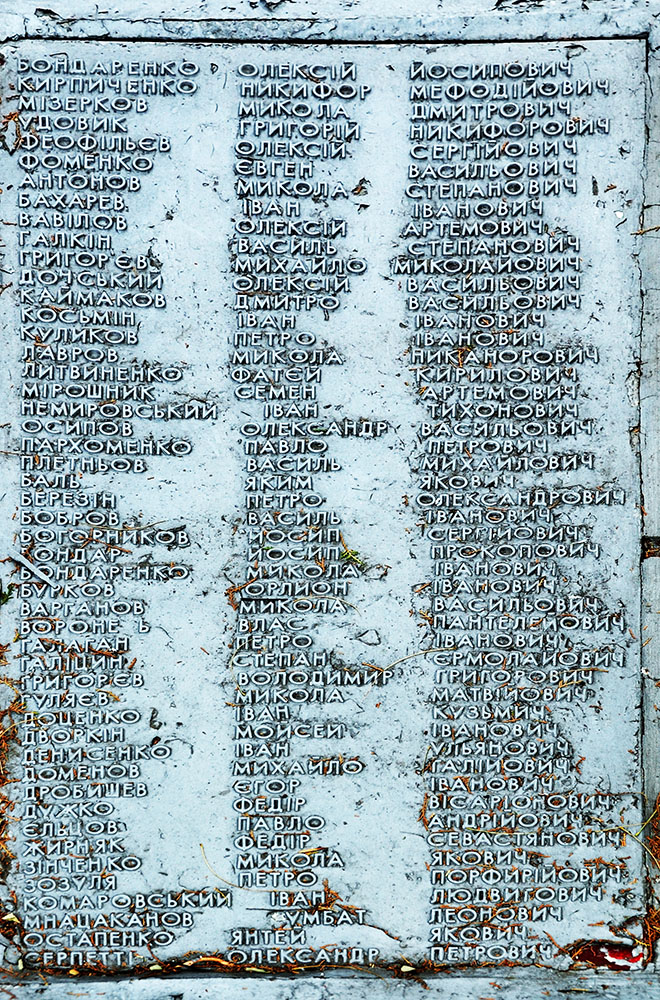 БОНДАРЕНКО ОЛЕКСІЙ ЙОСИПОВИЧ
КИРПИЧЕНКО НИКИФОР МЕФОДІЙОВИЧ
МІЗЕРКОВ МИКОЛА ДМИТРОВИЧ
УДОВИК ГРИГОРІЙ НИКИФОРОВИЧ
ФЕОФІЛЬЄВ ОЛЕКСІЙ СЕРГІЙОВИЧ
ФОМЕНКО ЄВГЕН ВАСИЛЬОВИЧ
АНТОНОВ МИКОЛА СТЕПАНОВИЧ
БАХАРЕВ ІВАН ІВАНОВИЧ
ВАВІЛОВ ОЛЕКСІЙ АРТЕМОВИЧ
ГАЛКІН ВАСИЛЬ СТЕПАНОВИЧ
ГРИГОР'ЄВ МИХАЙЛО МИКОЛАЙОВИЧ
ДОУСЬКИЙ ОЛЕКСІЙ ВАСИЛЬОВИЧ
КАЙМАКОВ ДМИТРО ВАСИЛЬОВИЧ
КОСЬМІН ІВАН ІВАНОВИЧ
КУЛИКОВ ПЕТРО ІВАНОВИЧ
ЛАВРОВ МИКОЛА НИКАНОРОВИЧ
ЛИТВИНЕНКО ФАТЄЙ КИРИЛОВИЧ
МІРОШНИК СЕМЕН АРТЕМОВИЧ
НЕМИРОВСЬКИЙ ІВАН ТИХОНОВИЧ
ОСИПОВ ОЛЕКСАНДР ВАСИЛЬОВИЧ
ПАРХОМЕНКО ПАВЛО ПЕТРОВИЧ
ПЛЕТНЬОВ ВАСИЛЬ МИХАЙЛОВИЧ
БАЛЬ ЯКИМ ЯКОВИЧ
БЕРЕЗІН ПЕТРО ОЛЕКСАНДРОВИЧ
БОБРОВ ВАСИЛЬ ІВАНОВИЧ
БОГОРНИКОВ ЙОСИП СЕРГІЙОВИЧ
БОНДАР ЙОСИП ПРОКОПОВИЧ
БОНДАРЕНКО МИКОЛА ІВАНОВИЧ
БУРКОВ ОРЛИОН ІВАНОВИЧ
ВАРГАНОВ МИКОЛА ВАСИЛЬОВИЧ
ВОРОНЕ Ь ВЛАС ПАНТЕЛЕЙОВИЧ
ГАЛАГАН ПЕТРО ІВАНОВИЧ
ГАЛІЦИН СТЕПАН ЄРМОЛАЙОВИЧ
ГРИГОР'ЄВ ВОЛОДИМИР ГРИГОРОВИЧ
ГУЛЯЄВ МИКОЛА МАТВІЙОВИЧ
ДОЦЕНКО ІВАН КУЗЬМИЧ
ДВОРКІН МОЙСЕЙ ІВАНОВИЧ
ДЕНИСЕНКО ІВАН УЛЬЯНОВИЧ
ДОМЕНОВ МИХАЙЛО ГАЛІЙОВИЧ
ДРОБИШЕВ ЄГОР ІВАНОВИЧ
ДУЖКО ФЕДІР ВІСАРІОНОВИЧ
ЄЛЬЦОВ ПАВЛО АНДРІЙОВИЧ
ЖИРНЯК ФЕДІР СЕВАСТЯНОВИЧ
ЗІНЧЕНКО МИКОЛА ЯКОВИЧ
ЗОЗУЛЯ ПЕТРО ПОРФИРІЙОВИЧ
КОМАРОВСЬКИЙ ІВАН ЛЮДВИГОВИЧ
МНАЦАКАНОВ СУМБАТ ЛЕОНОВИЧ
ОСТАПЕНКО ЯНТЕЙ ЯКОВИЧ
СЕРПЕТТІ ОЛЕКСАНДР ПЕТРОВИЧ